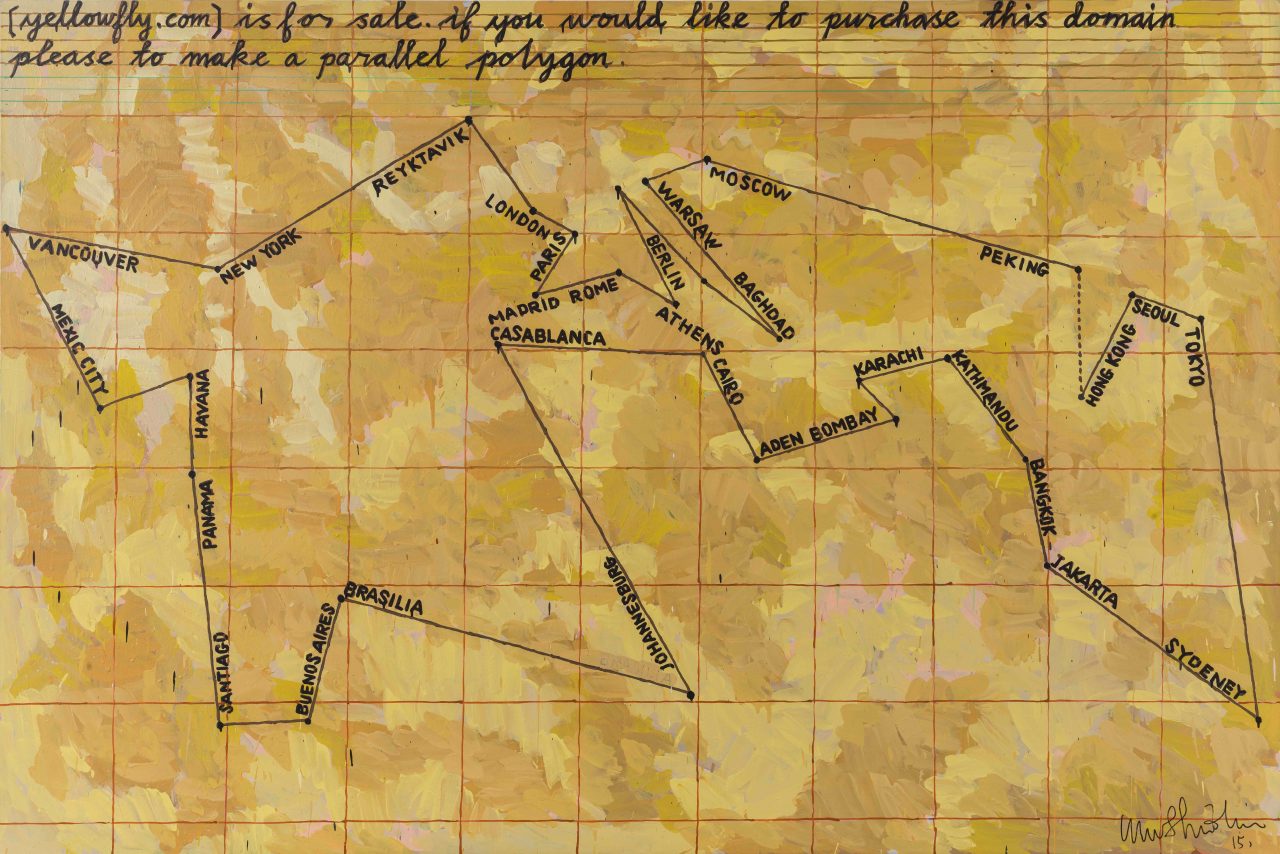 [yellowfly.com] is for sale. if you would like to purchase this domain
please to make a parallel polygon.
REYKTAVIK
MOSCOW
LONDON
WARSAW
VANCOUVER
NEW YORK
PARIS
BERLIN
PEKING
MADRID ROME
BAGHDAD
MEXIC CITY
ATHENS
SEOUL
CASABLANCA
TOKYO
HONG KONG
KARACHI
KATHMANDU
CAIRO
HAVANA
ADEN BOMBAY
BANGKOK
PANAMA
JAKARTA
BRASILIA
JOHANNESBURG
BUENOS AIRES
SANTIAGO
SYDENEY
15.